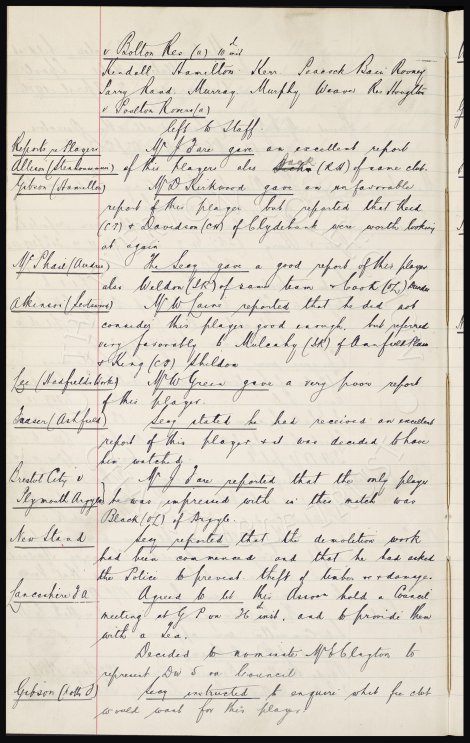 v Bolton Res (a) 10th inst
Kendall Hamilton Kerr Peacock Bain Rooney
Parry Rand Murray Murphy Weaver Res Houghton
v Poulton Rovers (a)
left to Staff.
Reports re Players Mr J Fare gave an excellent report
Allison (Stenhousemuir) of this players also Back (RH) of same club.
Gibson (Hamilton) Mr D Kirkwood gave an unfavorable
report of this player but reported that Reid
(CF) & Davidson (CH) of Clydebank were worth looking
at again
McPhail (Airdrie) The Secy gave a good report of this player
also Weldon (IR) of same team & Cook (OL)
Atkinson (Sedgwick) Mr W Laine reported that he did not
consider this player good enough, but referred
very favorably to Mulcahy (IR) of Annfield Plain
& King (CF) Shildon
Lee (Hadfields Works) Mr W Green gave a very poor report
of this player.
Fraser (Ashfield) Secy stated he had received an excellent
report of this player & it was decided to have
him watched
Bristol City v Mr J Fare reported that the only player
Plymouth Argyle he was impressed with in this match was
Black (OL) of Argyle.
New Stand Secy reported that the demolition work
had been commenced and that he had asked
the Police to prevent theft of timber or damage.
Lancashire F A Agreed to let this Asson hold a Council
meeting at G P on 26th inst. and to provide them
with a tea.
Decided to nominate Mr E Clayton to
represent Div 5 on Council
Gibson (Notts F) Secy instructed to enquire what fee club
would want for this player